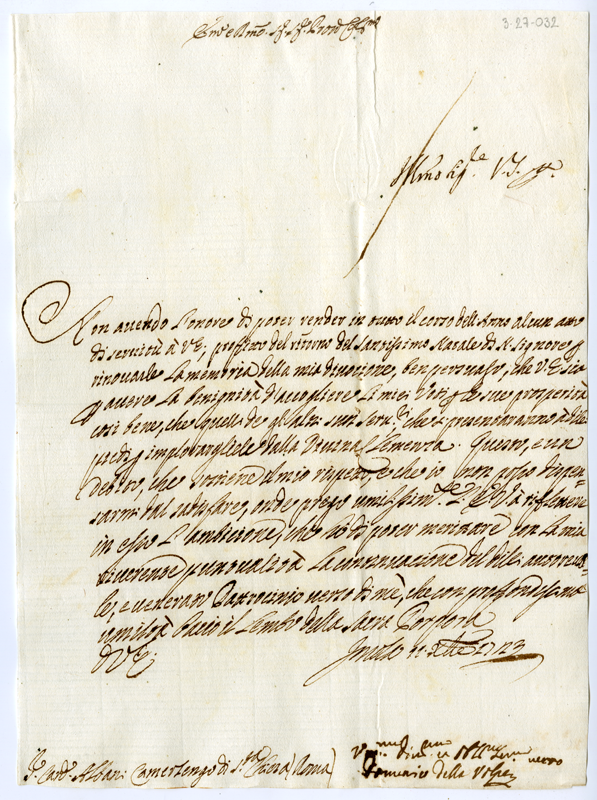 3-27-032
Em.o e Rmo. Sig.r Sig.r Prone Col.mo
Non avendo l'onore di poter render in tutto il corso dell'Anno alcun atto
di servitù à V.E; profitto del ritorno del Santissimo Natale di N. Signore p
rinovarle la memoria della mia divozione, ben persuaso, che V.E. sia
p avere la benignità d'accogliere i miei Voti p le sue prosperità
così bene, che quelli de gl'altri suoi Serv.ri che si presenteranno à
piedi p implorargliele dalla Divina Clemenza. Questo, è un
debito, che sostiene il mio rispetto, e che io non posso dispen=
sarmi dal sodisfare, onde prego umilissim.te l'E.V. à riflettere
in esso l'ambizione, che hò di poter meritare con la mia
riverente puntualità la continuazione del di lei autorevo=
le, e venerato Patrocinio verso di mè, che con profondissima
umiltà bacio il lembo della Sacra Porpora
D V.E.
11 Xbre 1723
S.r Card. Albani Camerlengo di S.ta Chiesa (Roma)
Domenico della Volpe